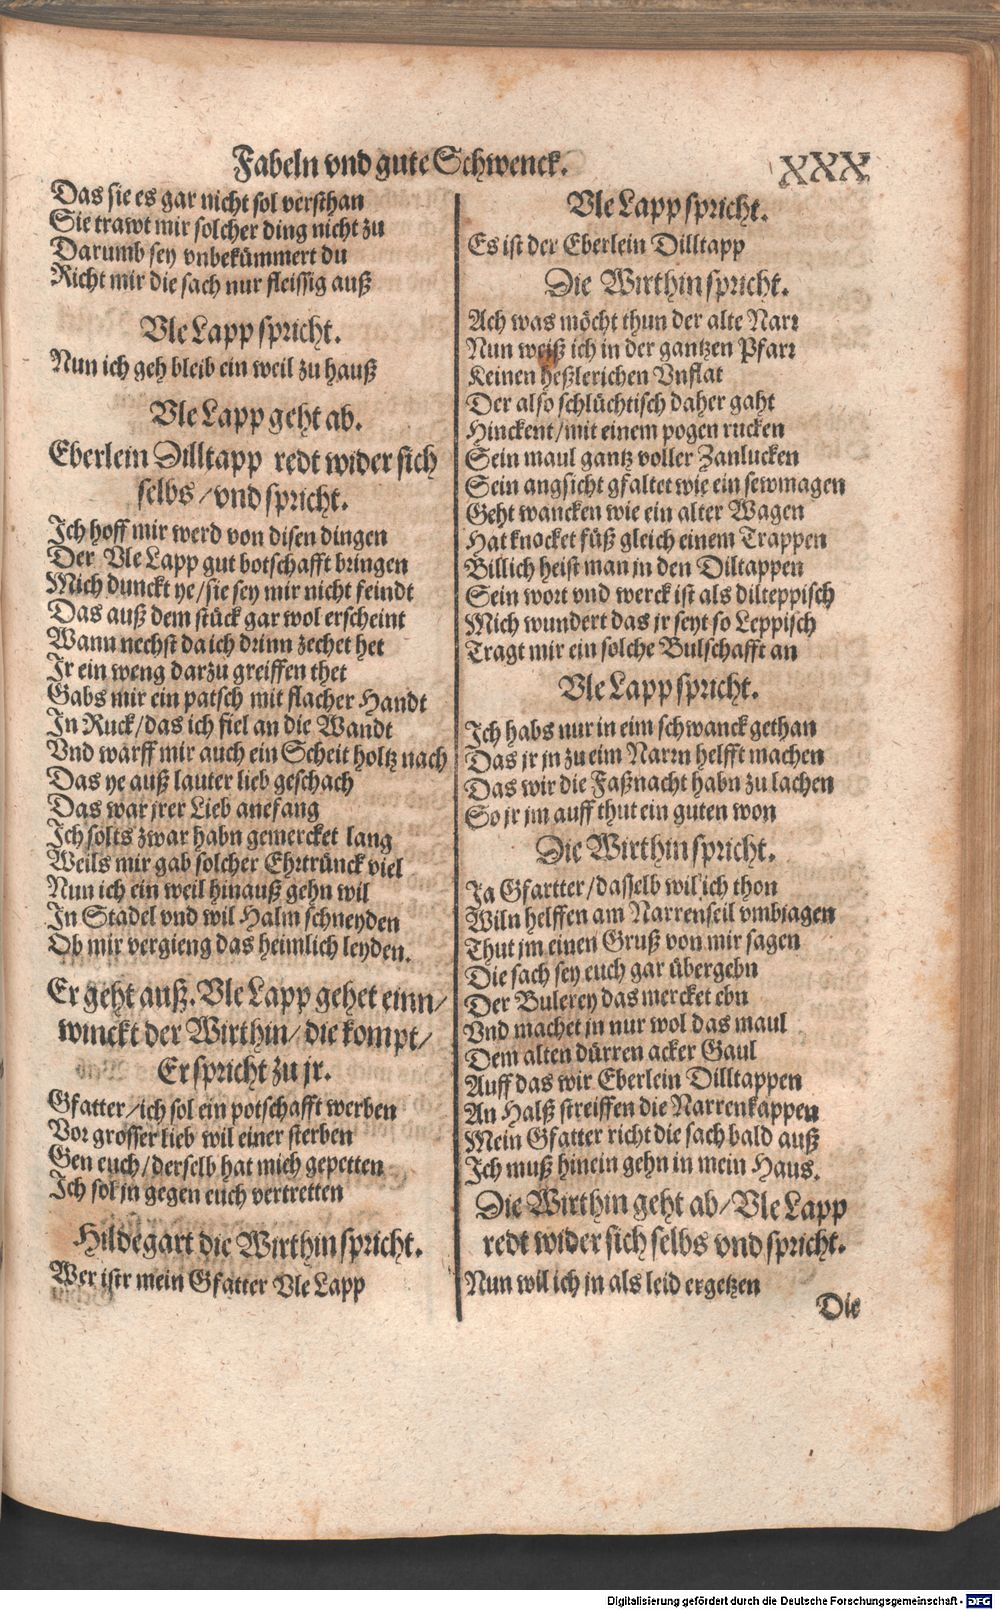 Fabeln vnd gute Schwenck.
XXX
Das sie es gar nicht sol versthan
Sie trawt mir solcher ding nicht zu
Darumb sey vnbekümmert du
Richt mir die sach nur fleissig auß
Vle Lapp spricht.
Nun ich geh bleib ein weil zu hauß
Vle Lapp geht ab.
Eberlein Dilltapp redt wider sich
selbs / vnd spricht.
Ich hoff mir werd von disen dingen
Der Vle Lapp gut botschafft bringen
Mich dunckt ye / sie sey mir nicht feindt
Das auß dem stück gar wol erscheint
Wann nechst da ich drinn zechet het
Jr ein weng darzu greiffen thet
Gabs mir ein patsch mit flacher Handt
In Ruck / das ich fiel an die Wandt
Vnd warff mir auch ein Scheit holtz nach
Das ye auß lauter lieb geschach
Das war jrer Lieb anefang
Ich solts zwar habn gemercket lang
Weils mir gab solcher Ehrtrünck viel
Nun ich ein weil hinauß gehn wil
In Stadel vnd wil Halm schneyden
Ob mir vergieng das heimlich leyden.
Er geht auß. Vle Lapp gehet einn /
winckt der Wirthin / die kompt /
Er spricht zu jr.
Gfatter / ich sol ein potschafft werben
Vor grosser lieb wil einer sterben
Gen euch / derselb hat mich gepetten
Ich sol jn gegen euch vertretten
Hildegart die Wirthin spricht.
Wer istr mein Gfatter Vle Lapp
Vle Lapp spricht.
Es ist der Eberlein Dilltapp
Die Wirthin spricht.
Ach was möcht thun der alte Narr
Nun weiß ich in der gantzen Pfarr
Keinen heßlerichen Vnflat
Der also schlüchtisch daher gaht
Hinckent / mit einem pogen rucken
Sein maul gantz voller Zanlucken
Sein angsicht gfaltet wie ein sewmagen
Geht wancken wie ein alter Wagen
Hat knocket füß gleich einem Trappen
Billich heist man in den Diltappen
Sein wort vnd werck ist als dilteppisch
Mich wundert das jr seyt so Leppisch
Tragt mir ein solche Bulschafft an
Vle Lapp spricht.
Ich habs nur in eim schwanck gethan
Das jr jn zu eim Narrn helfft machen
Das wir die Faßnacht habn zu lachen
So jr jm auff thut ein guten won
Die Wirthin spricht.
Ja Gfartter / dasselb wil ich thon
Wiln helffen am Narrenseil vmbjagen
Thut jm einen Gruß von mir sagen
Die sach sey euch gar übergebn
Der Bulerey das mercket ebn
Vnd machet jn nur wol das maul
Dem alten dürren acker Gaul
Auff das wir Eberlein Dilltappen
An Halß streiffen die Narrenkappen
Mein Gfatter richt die sach bald auß
Ich muß hinein gehn in mein Haus.
Die Wirthin geht ab / Vle Lapp
redt wider sich selbs vnd spricht.
Nun wil ich jn als leid ergetzen
Die
Digitalisierung gefördert durch die Deutsche Forschungsgemeinschaft - DFG